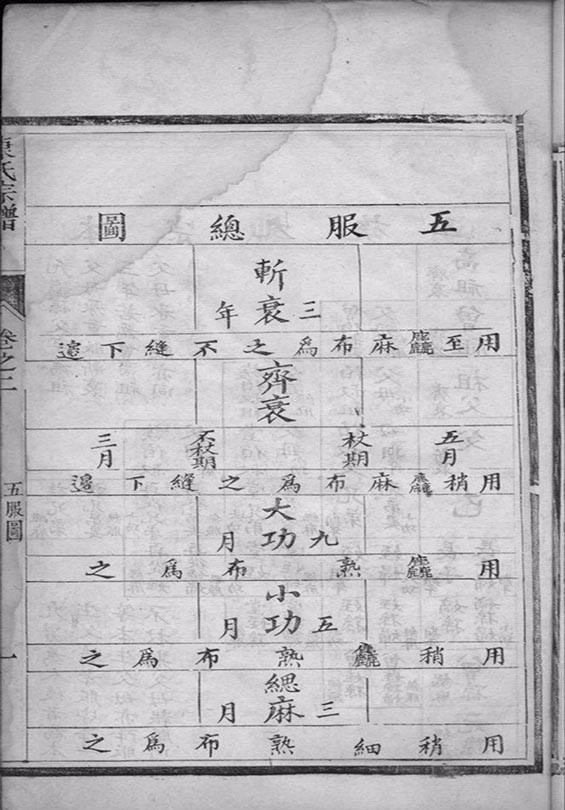 五服總圖
斬衰
三年
用至麤麻布爲之不縫下邊
齊衰
五月
杖期
不杖期
三月
用稍麤麻布爲之縫下邊
大功
九月
用麤熟布爲之
小功
五月
用稍麤熟布爲之
緦麻
三月
用稍細熟布爲之
氏宗譜
卷之二
五服圖
一